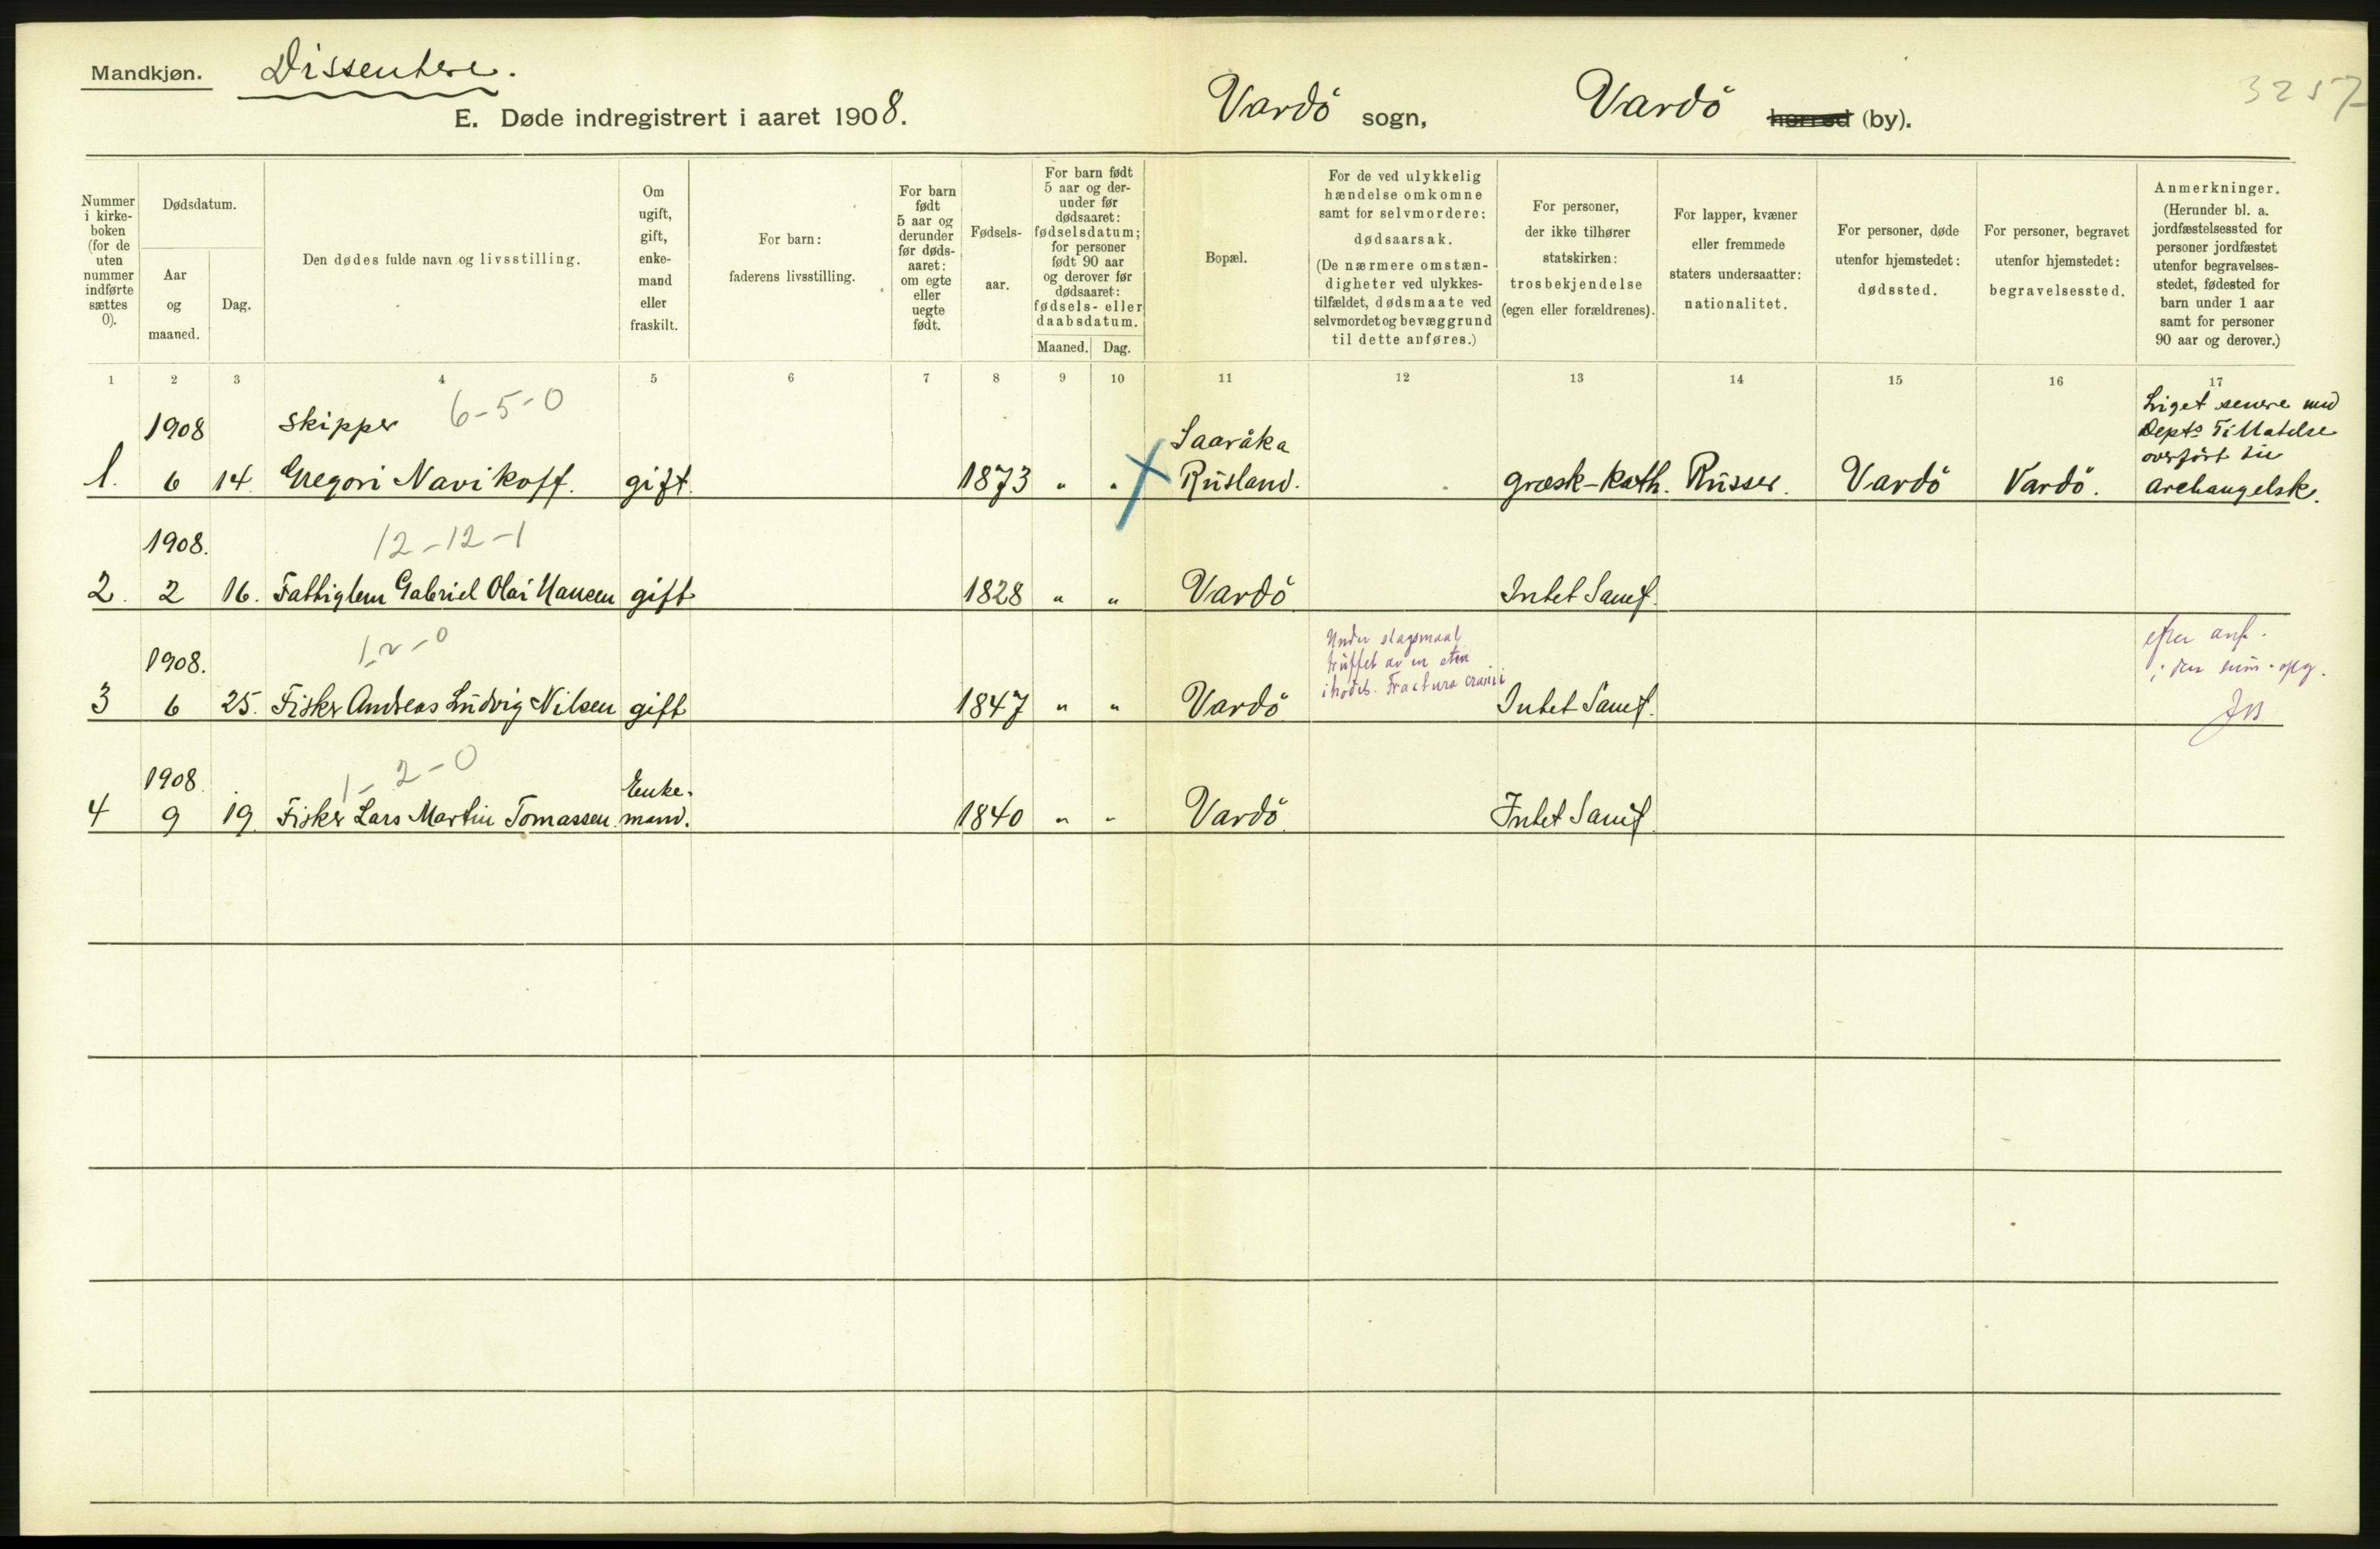 Mandkjøn. Dissentere.
3257
E. Døde indregistrert i aaret 1908. Vardö sogn, Vardö herred (by).
Nummer i kirke-boken (for de uten nummer indførte sættes 0).
Dødsdatum.
Aar og maaned.
Dag.
Den dødes fulde navn og livsstilling.
Om ugift, gift, enke-mand eller fraskilt.
For barn: faderens livsstilling.
For barn født 5 aar og derunder før døds-aaret: om egte eller uegte født.
Fødsels-aar.
For barn født 5 aar og der-under før dødsaaret: fødselsdatum; for personer født 90 aar og derover før dødsaaret: fødsels- eller daabsdatum.
Maaned. Dag.
Bopæl.
For de ved ulykkelig hændelse omkomne samt for selvmordere: dødsaarsak. (De nærmere omstæn-digheter ved ulykkes-tilfældet, dødsmaate ved selvmordet og bevæggrund til dette anføres.)
For personer, der ikke tilhører statskirken: trosbekjendelse (egen eller forældrenes).
For lapper, kvæner eller fremmede staters undersaatter: nationalitet.
For personer, døde utenfor hjemstedet: dødssted.
For personer, begravet utenfor hjemstedet: begravelsessted.
Anmerkninger. (Herunder bl. a. jordfæstelsessted for personer jordfæstet utenfor begravelses-stedet, fødested for barn under 1 aar samt for personer 90 aar og derover.)
1 2 3 4 5 6 7 8 9 10 11 12 13 14 15 16 17
1908 Skipper 6-5-0 Liget senere med
Depts Tilladelse
overført til
1. 6 14. Gregori Navikoff. gift. 1873 " " Rusland. græsk-kath. Russer. Vardö Vardö. Archangelsk.
1908. 12-12-1
2. 2 16. Fattiglem Gabriel Olai Hansen gift 1828 " " Vardö Intet Samf.
1908. 1-2-0 Under slagsmaal
truffet av en sten
i hodet. Fractura cranii
3 6 25. Fisker Andreas Ludvig Nilsen gift 1847 " " Vardö Intet Samf.
1908. 1-2-0 Enke-
4 9 19. Fisker Lars Martin Tomassen. mand. 1840 " " Vardö. Intet Samf.